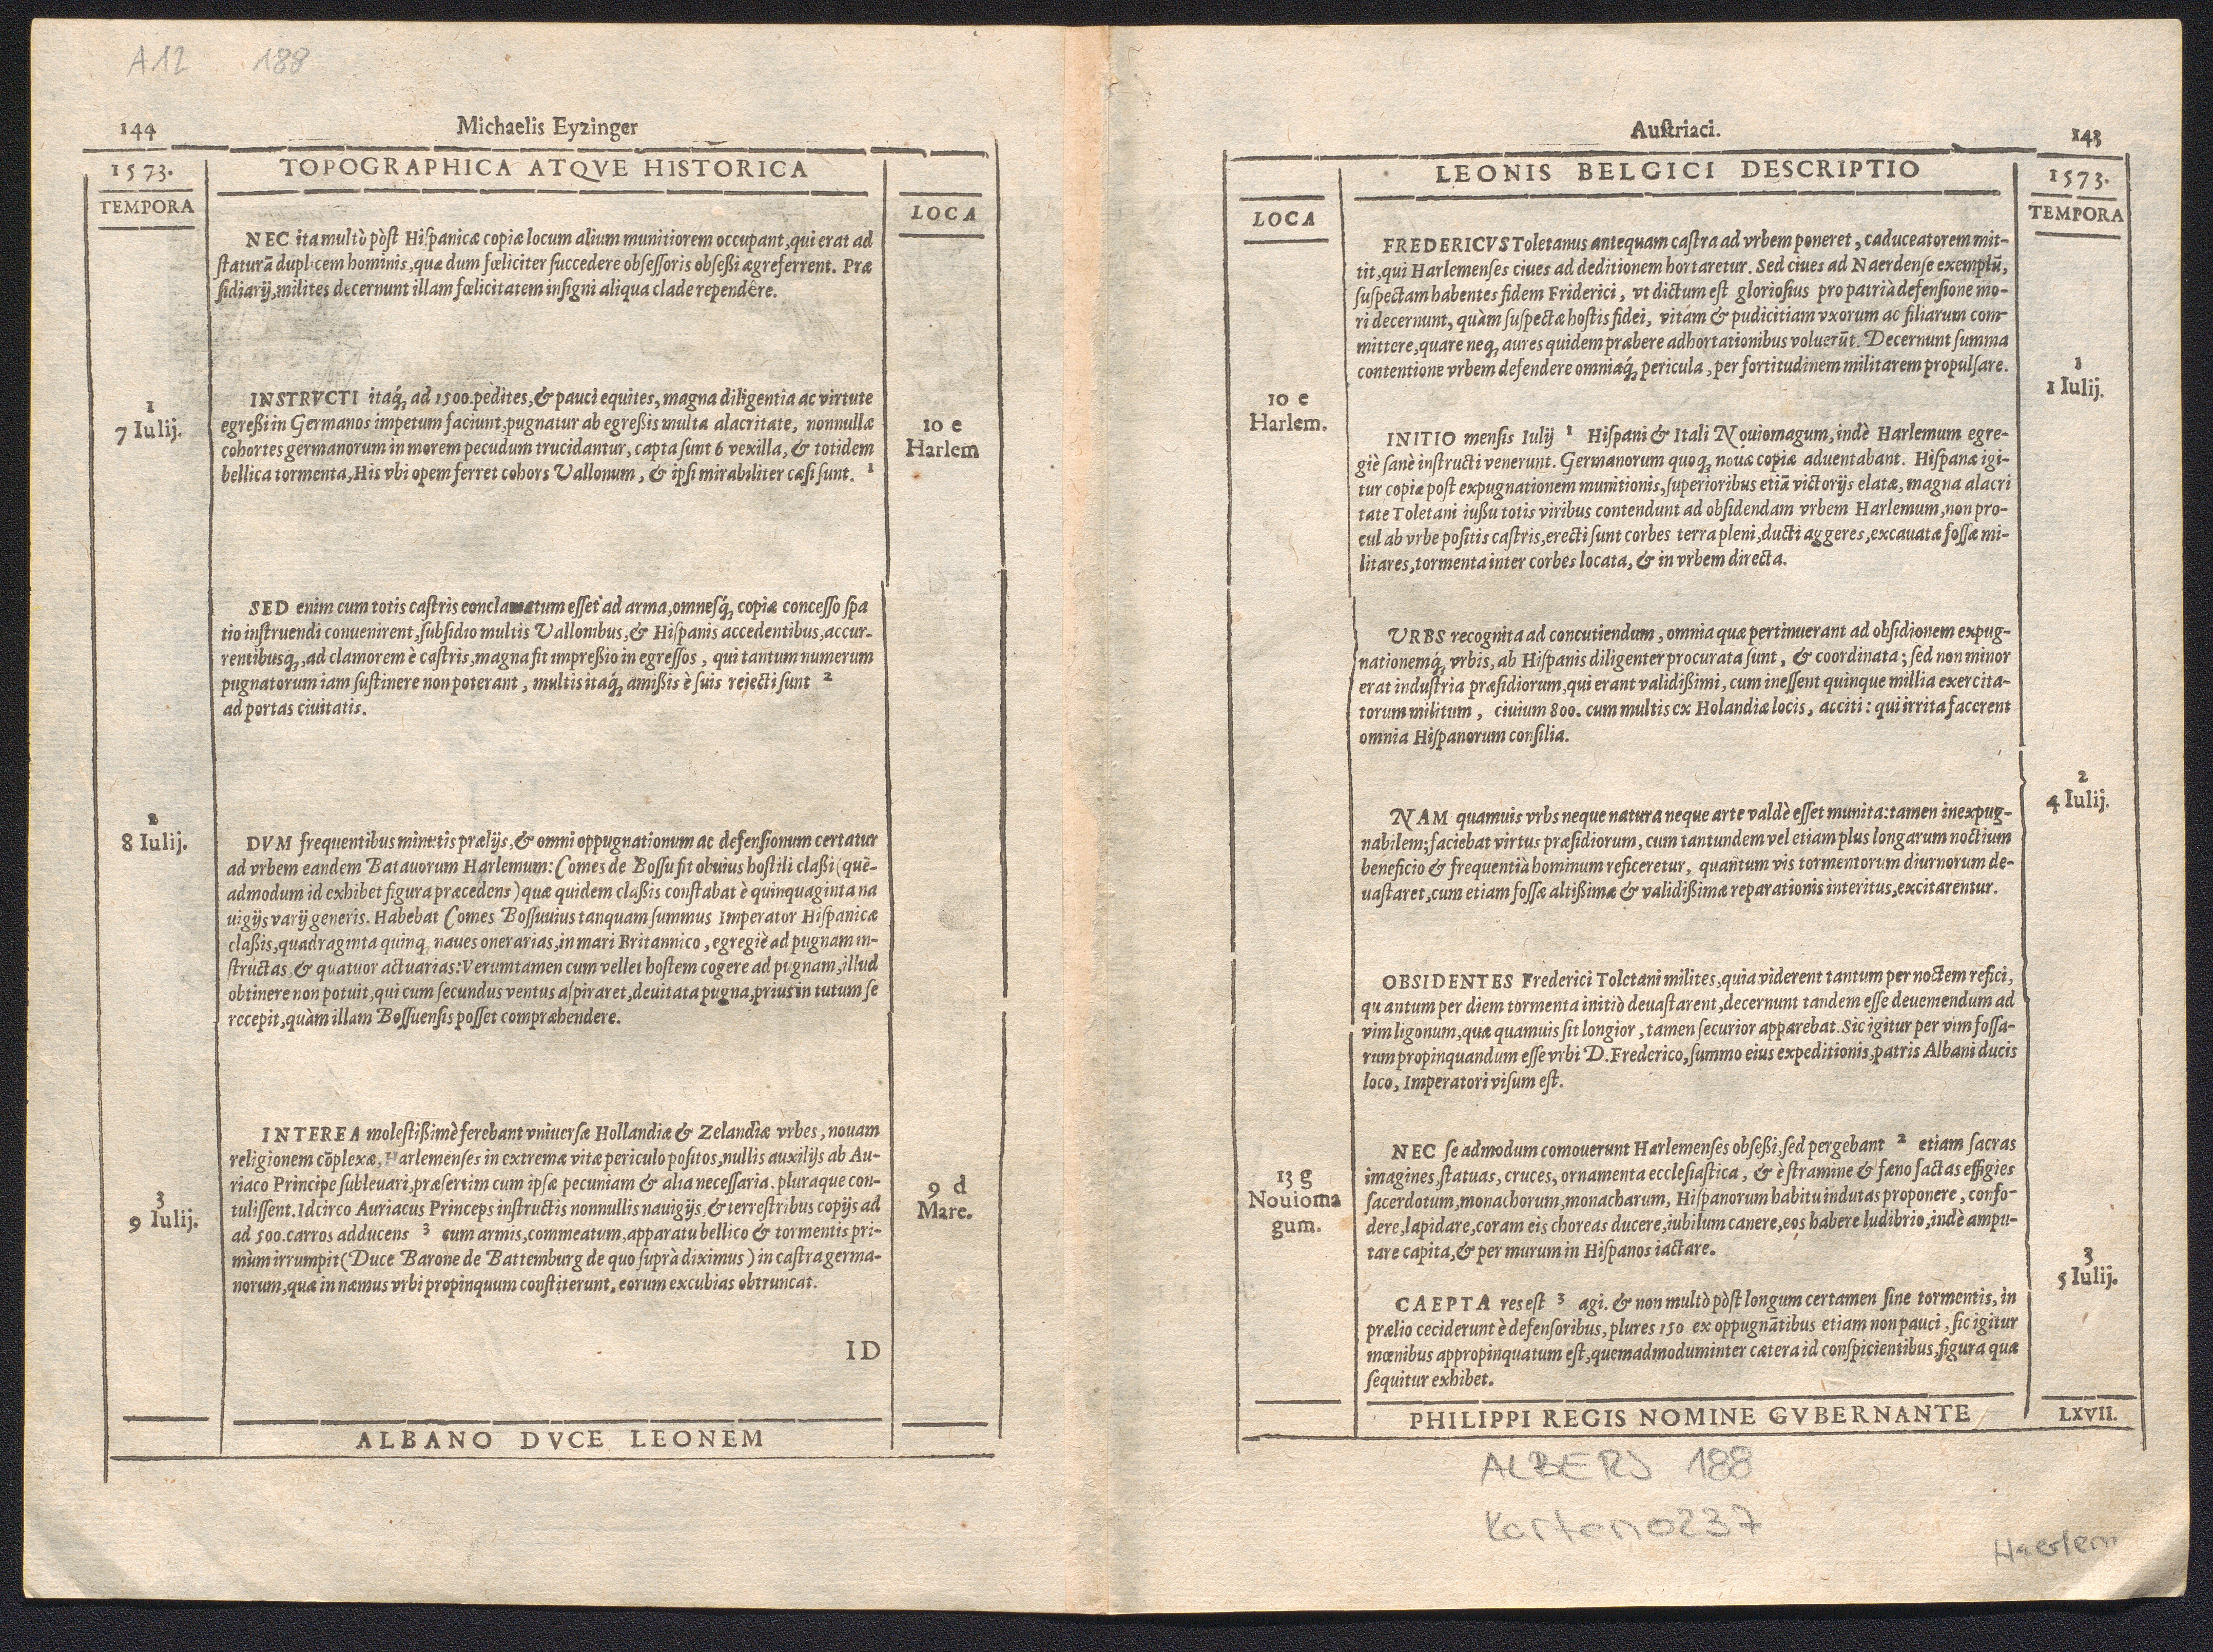 A12 188
144 Michaelis Eyzinger
1573. TOPOGRAPHICA ATQVE HISTORICA
TEMPORA
LOCA
NEC ita multò pòſt Hiſpanicæ copiæ locum alium munitiorem occupant, qui erat ad
ſtaturā duplicem hominis, quæ dum fœliciter ſuccedere obſeſſoris obſeßi ægreferrent. Præ
ſidiarij, milites decernunt illam fœlicitatem inſigni aliqua clade rependêre.
INSTRVCTI itaq́, ad 1500. pedites, & pauci equites, magna diligentia ac virtute
1
7 Iulij.
egreßi in Germanos impetum faciunt, pugnatur ab egreßis multa alacritate, nonnullæ
cohortes germanorum in morem pecudum trucidantur, capta ſunt 6 vexilla, & totidem
bellica tormenta, His vbi opem ferret cohors Vallonum, & ipſi mirabiliter cæſi ſunt. 1
10 e
Harlem
SED enim cum totis caſtris conclamatum eſſet ad arma, omneſq́, copiæ conceſſo ſpa
tio inſtruendi conuenirent, ſubſidio multis Vallonibus, & Hiſpanis accedentibus, accur-
rentibusq́,, ad clamorem è caſtris, magna fit impreßio in egreſſos, qui tantum numerum
pugnatorum iam ſuſtinere non poterant, multis itaq́, amißis è ſuis rejecti ſunt 2
ad portas ciuitatis.
2
8 Iulij.
DVM frequentibus minutis prælijs, & omni oppugnationum ac defenſionum certatur
ad vrbem eandem Batauorum Harlemum: Comes de Boſſu fit obuius hoſtili claßi (quē-
admodum id exhibet figura præcedens) quæ quidem claßis conſtabat è quinquaginta na
uigijs varij generis. Habebat Comes Boſſuuius tanquam ſummus Imperator Hiſpanicæ
claßis, quadraginta quinq, naues onerarias, in mari Britannico, egregiè ad pugnam in-
ſtructas, & quatuor actuarias: Verumtamen cum vellet hoſtem cogere ad pugnam, illud
obtinere non potuit, qui cum ſecundus ventus aſpiraret, deuitata pugna, prius in tutum ſe
recepit, quàm illam Boſſuenſis poſſet compræhendere.
INTEREA moleſtißimè ferebant vniuerſæ Hollandiæ & Zelandiæ vrbes, nouam
religionem cōplexæ, Harlemenſes in extremæ vitæ periculo poſitos, nullis auxilijs ab Au-
riaco Principe ſubleuari, præſertim cum ipſæ pecuniam & alia neceſſaria. pluraque con-
tuliſſent. Idcirco Auriacus Princeps inſtructis nonnullis nauigijs, & terreſtribus copijs ad
ad 500. carros adducens 3 cum armis, commeatum, apparatu bellico & tormentis pri-
mùm irrumpit (Duce Barone de Battemburg de quo ſuprà diximus) in caſtra germa-
norum, quæ in næmus vrbi propinquum conſtiterunt, eorum excubias obtruncat.
3
9 Iulij.
9 d
Mare.
ID
ALBANO DVCE LEONEM
Auſtriaci. 143
LEONIS BELGICI DESCRIPTIO 1573.
LOCA
TEMPORA
FREDERICVS Toletanus antequam caſtra ad vrbem poneret, caduceatorem mit-
tit, qui Harlemenſes ciues ad deditionem hortaretur. Sed ciues ad Naerdenſe exemplū,
ſuſpectam habentes fidem Friderici, vt dictum eſt glorioſius pro patriâ defenſione mo-
ri decernunt, quàm ſuſpectæ hoſtis fidei, vitam & pudicitiam vxorum ac filiarum com-
mittere, quare neq, aures quidem præbere adhortationibus voluerūt. Decernunt ſumma
contentione vrbem defendere omniaq́, pericula, per fortitudinem militarem propulſare.
1
1 Iulij.
10 e
Harlem.
INITIO menſis Iulij 1 Hiſpani & Itali Nouiomagum, indè Harlemum egre-
giè ſanè inſtructi venerunt. Germanorum quoq, nouæ copiæ aduentabant. Hiſpanæ igi-
tur copiæ poſt expugnationem munitionis, ſuperioribus etiā victorijs elatæ, magna alacri
tate Toletani iuſſu totis viribus contendunt ad obſidendam vrbem Harlemum, non pro-
cul ab vrbe poſitis caſtris, erecti ſunt corbes terra pleni, ducti aggeres, excauatæ foſſæ mi-
litares, tormenta inter corbes locata, & in vrbem directa.
VRBS recognita ad concutiendum, omnia quæ pertinuerant ad obſidionem expug-
nationemq́, vrbis, ab Hiſpanis diligenter procurata ſunt, & coordinata; ſed non minor
erat induſtria præſidiorum, qui erant validißimi, cum ineſſent quinque millia exercita-
torum militum, ciuium 800. cum multis ex Holandiæ locis, acciti: qui irrita facerent
omnia Hiſpanorum conſilia.
2
4 Iulij.
NAM quamuis vrbs neque natura neque arte valdè eſſet munita: tamen inexpug-
nabilem; faciebat virtus præſidiorum, cum tantundem vel etiam plus longarum noctium
beneficio & frequentiâ hominum reficeretur, quantum vis tormentorum diurnorum de-
uaſtaret, cum etiam foſſæ altißimæ & validißimæ reparationis interitus, excitarentur.
OBSIDENTES Frederici Toletani milites, quia viderent tantum per noctem refici,
quantum per diem tormenta initiò deuaſtarent, decernunt tandem eſſe deueniendum ad
vim ligonum, quæ quamuis ſit longior, tamen ſecurior apparebat. Sic igitur per vim foſſa-
rum propinquandum eſſe vrbi D. Frederico, ſummo eius expeditionis, patris Albani ducis
loco, Imperatori viſum eſt.
NEC ſe admodum comouerunt Harlemenſes obſeßi, ſed pergebant 2 etiam ſacras
imagines, ſtatuas, cruces, ornamenta eccleſiaſtica, & è ſtramine & fæno factas effigies
ſacerdotum, monachorum, monacharum, Hiſpanorum habitu indutas proponere, confo-
dere, lapidare, coram eis choreas ducere, iubilum canere, eos habere ludibrio, indè ampu-
tare capita, & per murum in Hiſpanos iactare.
13 g
Nouioma
gum.
3
5 Iulij.
CAEPTA res eſt 3 agi. & non multò pòſt longum certamen ſine tormentis, in
prælio ceciderunt è defenſoribus, plures 150 ex oppugnātibus etiam non pauci, ſic igitur
mœnibus appropinquatum eſt, quemadmodum inter cætera id conſpicientibus, figura quæ
ſequitur exhibet.
PHILIPPI REGIS NOMINE GVBERNANTE LXVII.
ALBERS 188
Karton 0237
Haerlem